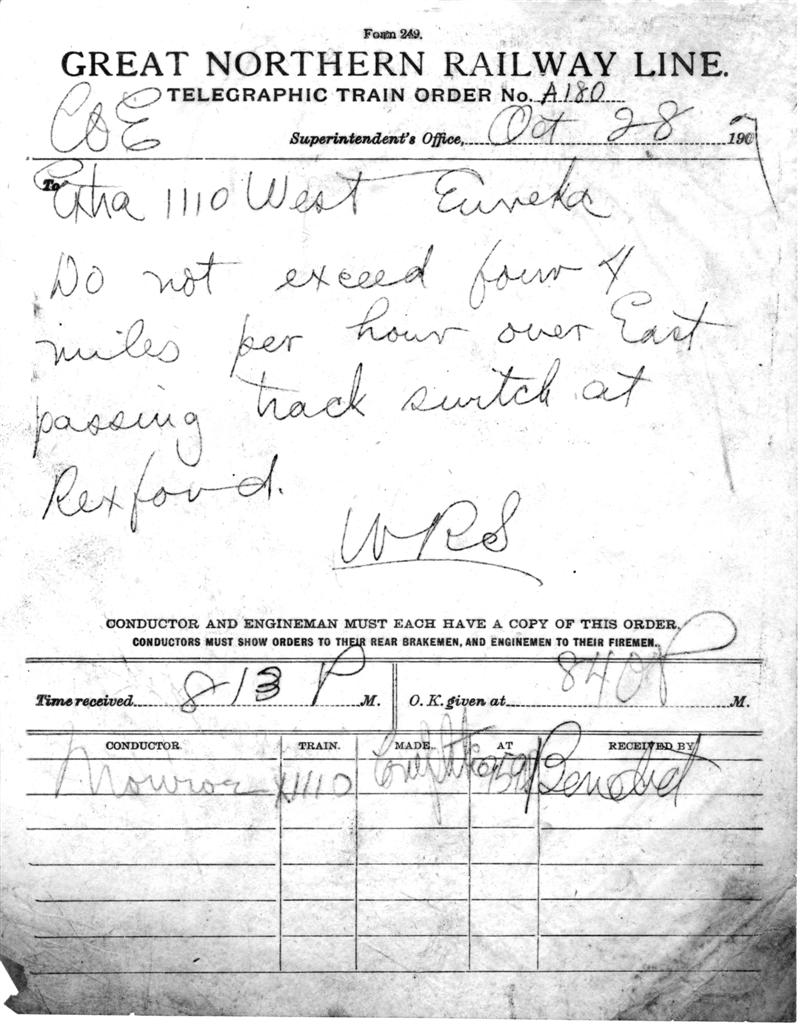 Form 249.
GREAT NORTHERN RAILWAY LINE.
TELEGRAPHIC TRAIN ORDER No. A180
C&E
Superintendent's Office, Oct 28 1907
To Extra 1110 West Eureka
Do not exceed four 4
miles per hour over East
passing track switch at
Rexford.
WRS
CONDUCTOR AND ENGINEMAN MUST EACH HAVE A COPY OF THIS ORDER.
CONDUCTORS MUST SHOW ORDERS TO THEIR REAR BRAKEMEN, AND ENGINEMEN TO THEIR FIREMEN.
Time received 8 13 P M. O. K. given at 840 P M.
CONDUCTOR TRAIN. MADE AT RECEIVED BY
Monroe X1110 Benedict